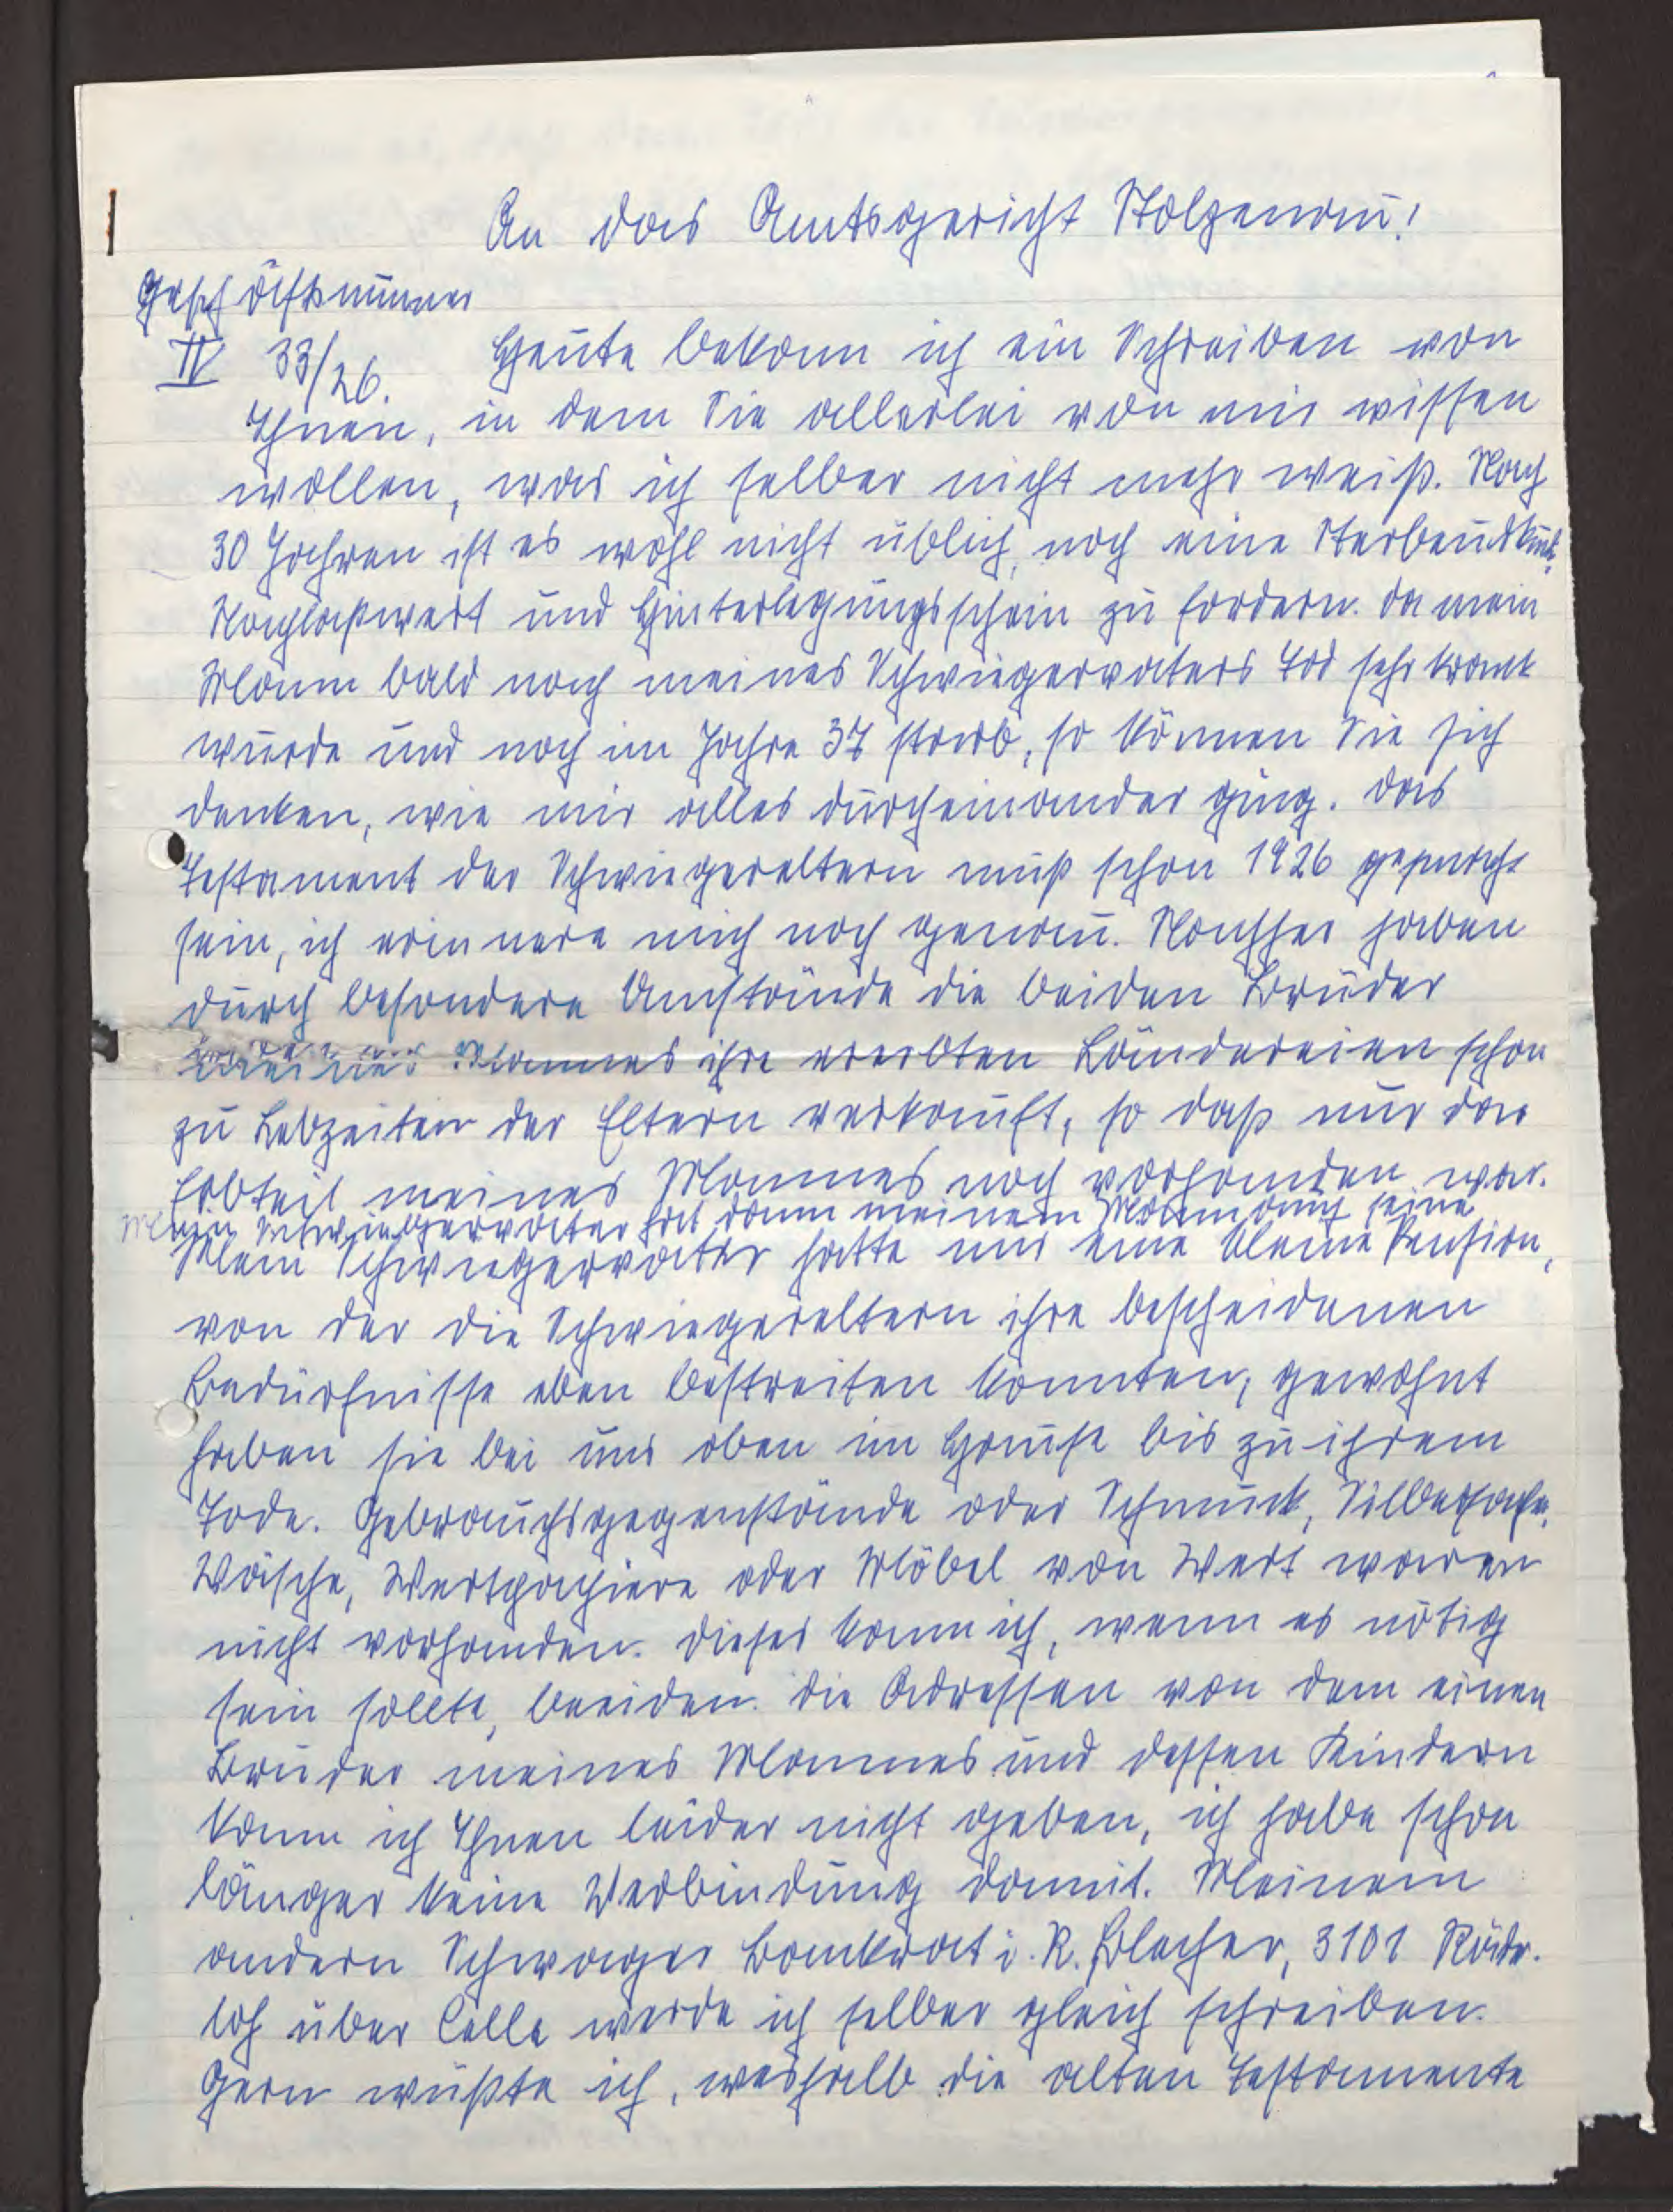 An das Amtsgericht Stolzenau!
Geschäftsnummer
IV 33/26. Heute bekam ich ein Schreiben von
Ihnen, in dem Sie allerlei von mir wissen
wollen, was ich selber nicht mehr weiß. Nach
30 Jahren ist es wohl nicht üblich, noch eine Sterbeurkunde,
Nachlaßwert und Hinterlegungsschein zu fordern. Da mein
Mann bald nach meines Schwiegervaters Tod sehr krank
wurde und noch im Jahre 37 starb, so können Sie sich
denken, wie mir alles durcheinander ging. Das
Testament der Schwiegereltern muß schon 1926 gemacht
sein, ich erinnere mich noch genau. Nachher haben
durch besondere Umstände die beiden Brüder
meines Mannes ihre ererbten Ländereien schon
zu Lebzeiten der Eltern verkauft, so daß nur das
Erbteil meines Mannes noch vorhanden war.
Mein Schwiegervater hat dann meinem Mann auch seine
Mein Schwiegervater hatte nur eine kleine Pension,
von der die Schwiegereltern ihre bescheidenen
Bedürfnisse eben bestreiten konnten, gewohnt
haben sie bei uns oben im Hause bis zu ihrem
Tode. Gebrauchsgegenstände oder Schmuck, Silbersachen,
Wäsche, Wertpapiere oder Möbel von Wert waren
nicht vorhanden. Dieses kann ich, wenn es nötig
sein sollte, beeiden. Die Adressen von dem einen
Bruder meines Mannes und dessen Kindern
kann ich Ihnen leider nicht geben, ich habe schon
länger keine Verbindung damit. Meinem
andern Schwager Bankrat i. R. Blacher, 3101
loh über Celle werde ich selber gleich schreiben.
Gern wüßte ich, weshalb die alten Testamente